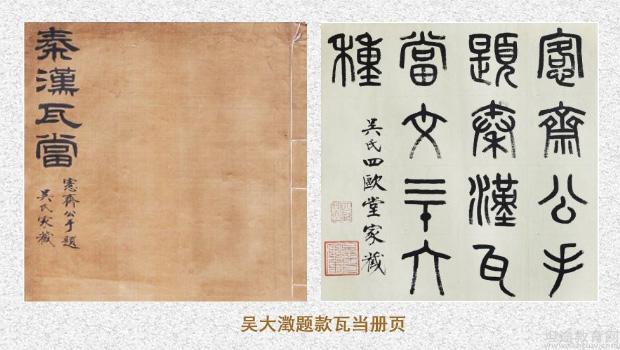 秦漢瓦當
愙齋公手題
吳氏家藏
愙齋公手
題秦漢瓦
當文六
種
吳氏四歐堂家藏
吴大澂题款瓦当册页